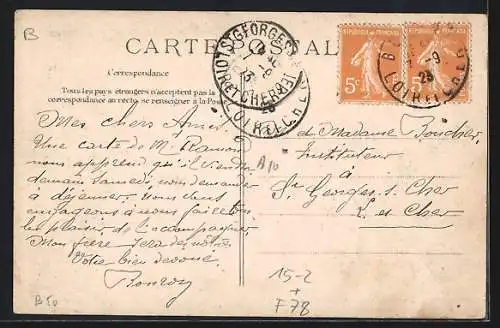 B
CARTE POSTALE
Correspondance
Tous les pays étrangers n'acceptent pas la
correspondance au recto, se renseigner à la Poste
REPUBLIQUE FRANÇAISE
5c
REPUBLIQUE FRANÇAISE
5c
ST GEORGES
LOIR ET CHER
28
-9
28
LOIR ET CHER
Mes chers Amis,
Une carte de Mr Ramon
nous apprend qu'il viendra
demain samedi, nous demander
à déjeuner. Nous vous
engageons à nous faire tous
les plaisir de l'accompagner,
Mon frère sera des nôtres.
Votre bien dévoué
et Madame Boucher
Instituteur
à
St Georges s. Cher
L. et Cher
B10
15-2
+
F78
B50